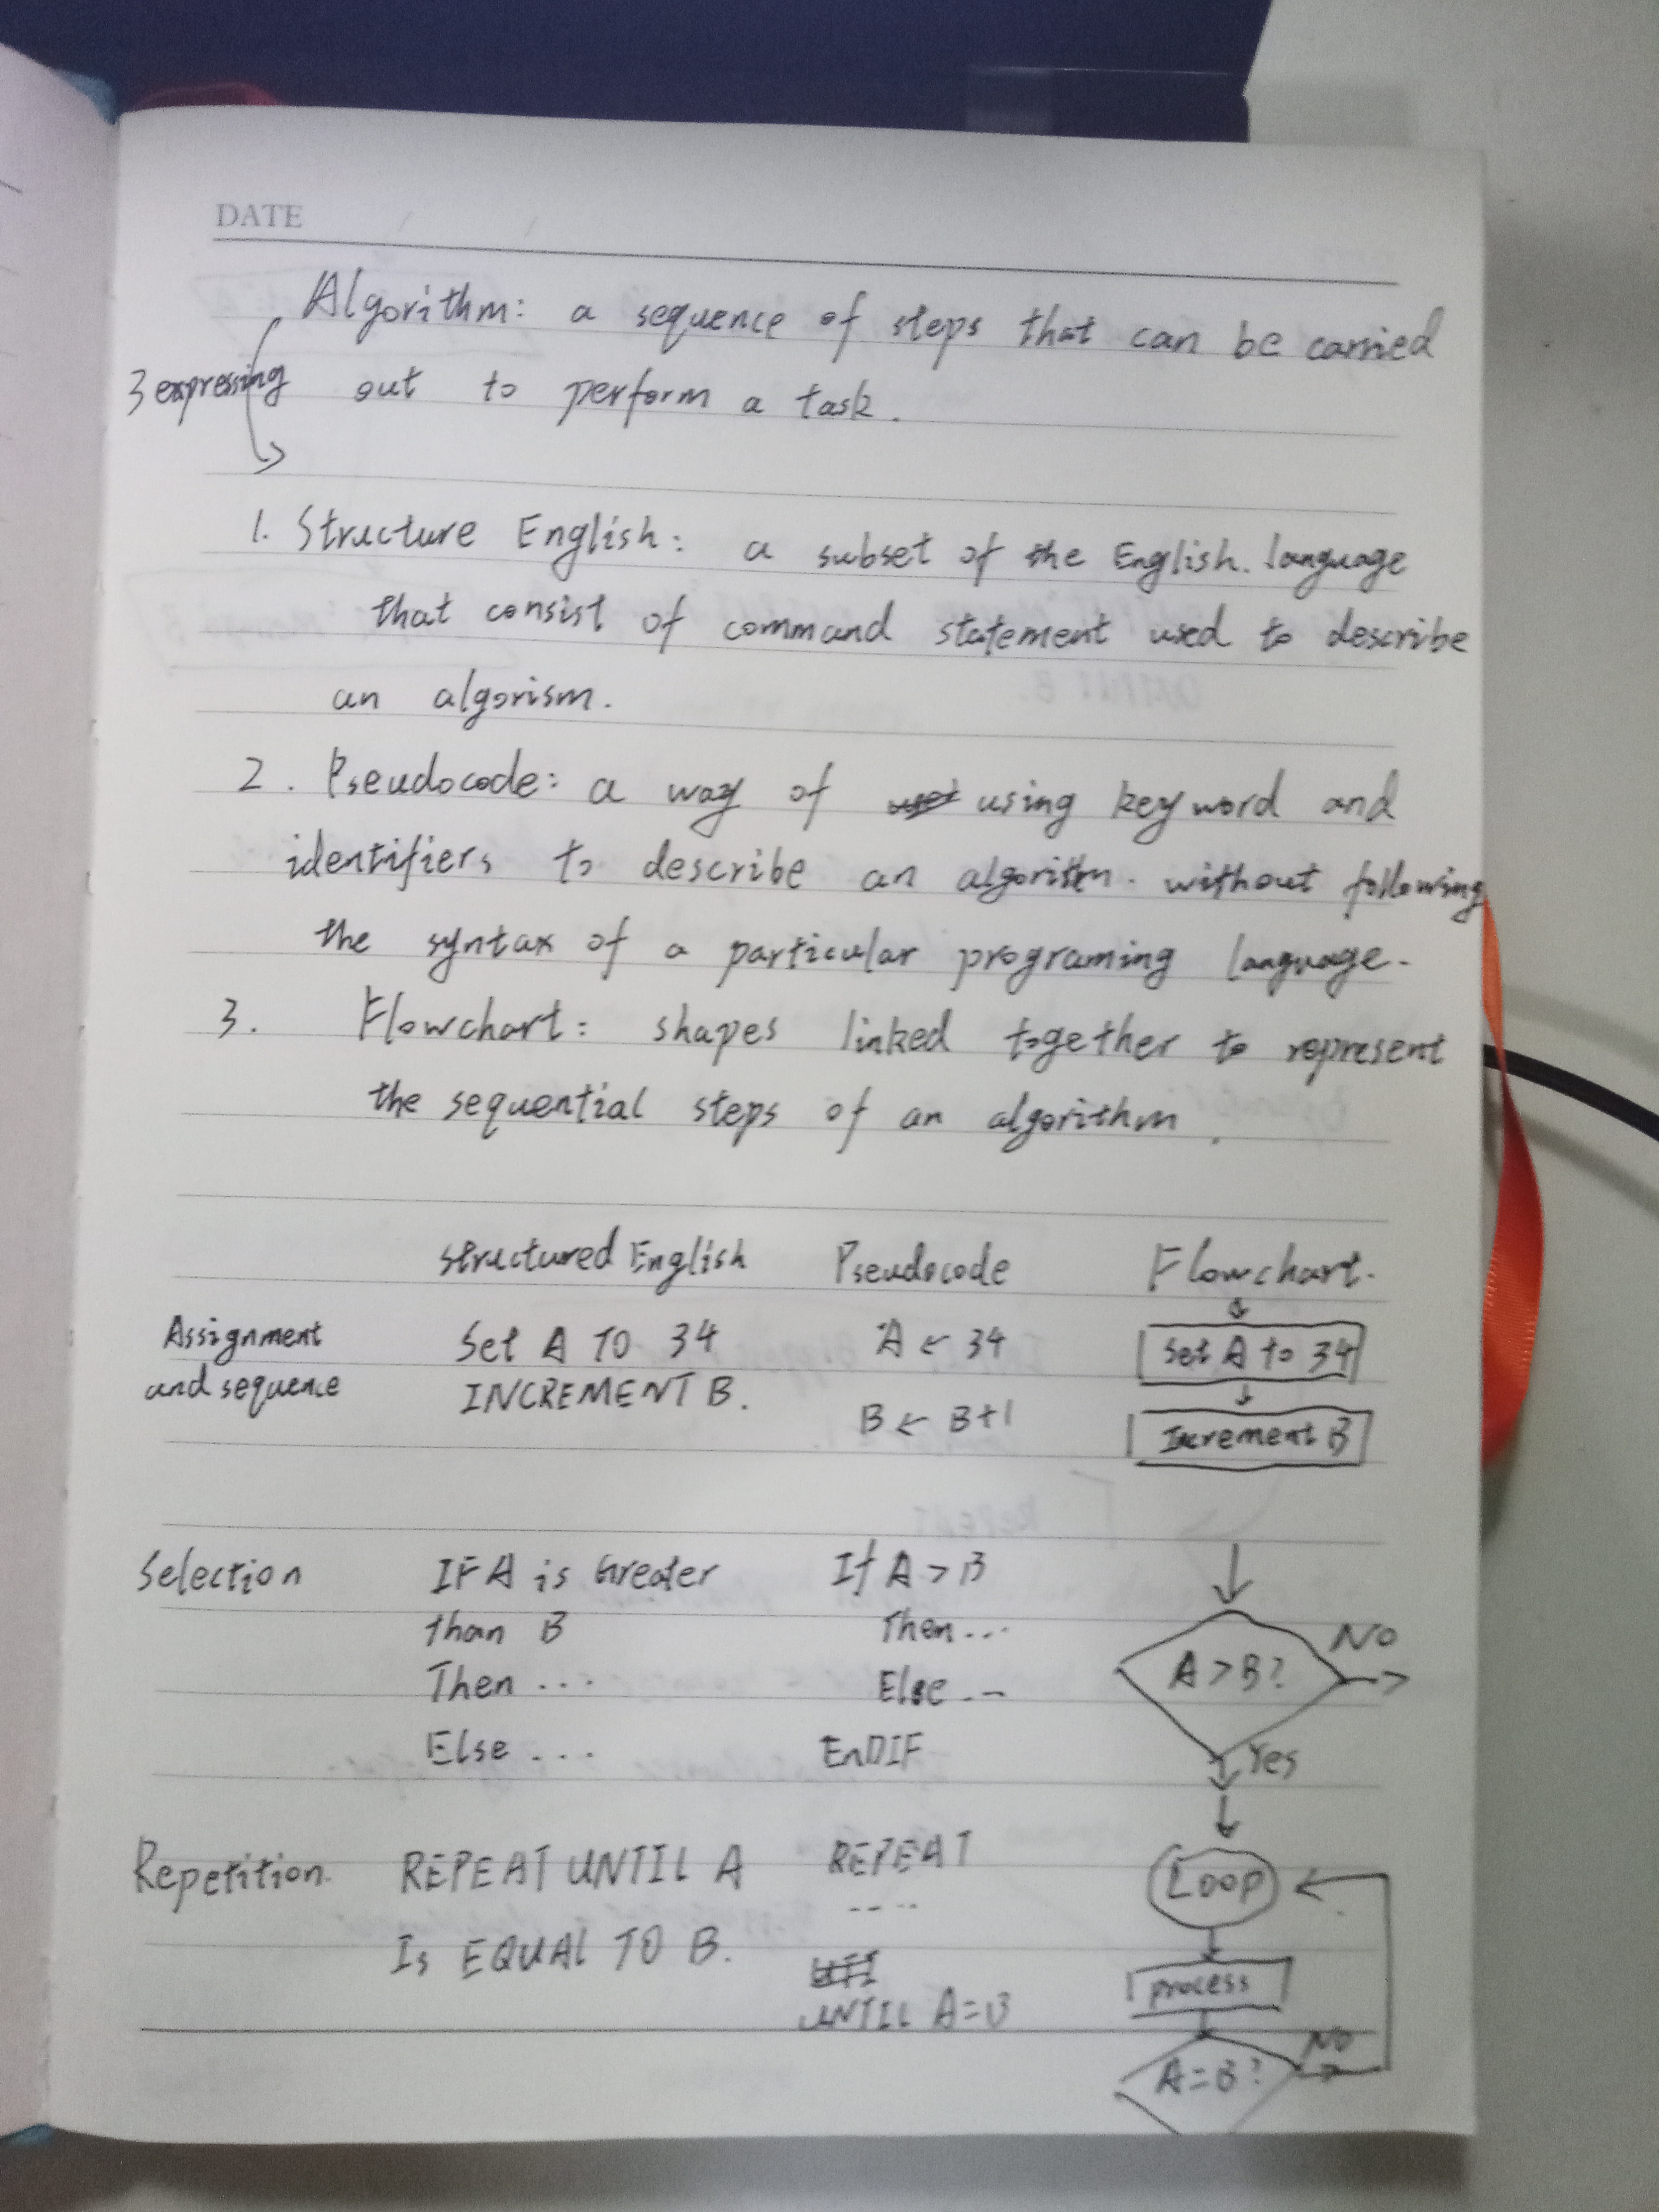 DATE
Algorithm: a sequence of steps that can be carried
3 expressing out to perform a task.
1. Structure English: a subset of the English. language
that consist of command statement used to describe
an algorism.
2. Pseudocode: a way of using keyword and
identifiers to describe an algorithm. without following
the syntax of a particular programing language.
3. Flowchart: shapes linked together to represent
the sequential steps of an algorithm.
structured English Pseudocode Flowchart.
Assignment Set A TO 34 A ← 34 Set A to 34
and sequence INCREMENT B. B ← B+1 Increment B
Selection IF A is Greater If A > B
than B Then... NO
Then ... Else... A > B?
Else .... EnDIF Yes
Repetition. REPEAT UNTIL A REPEAT Loop
....
Is EQUAL TO B. process
UNTIL A=B NO
A=B?